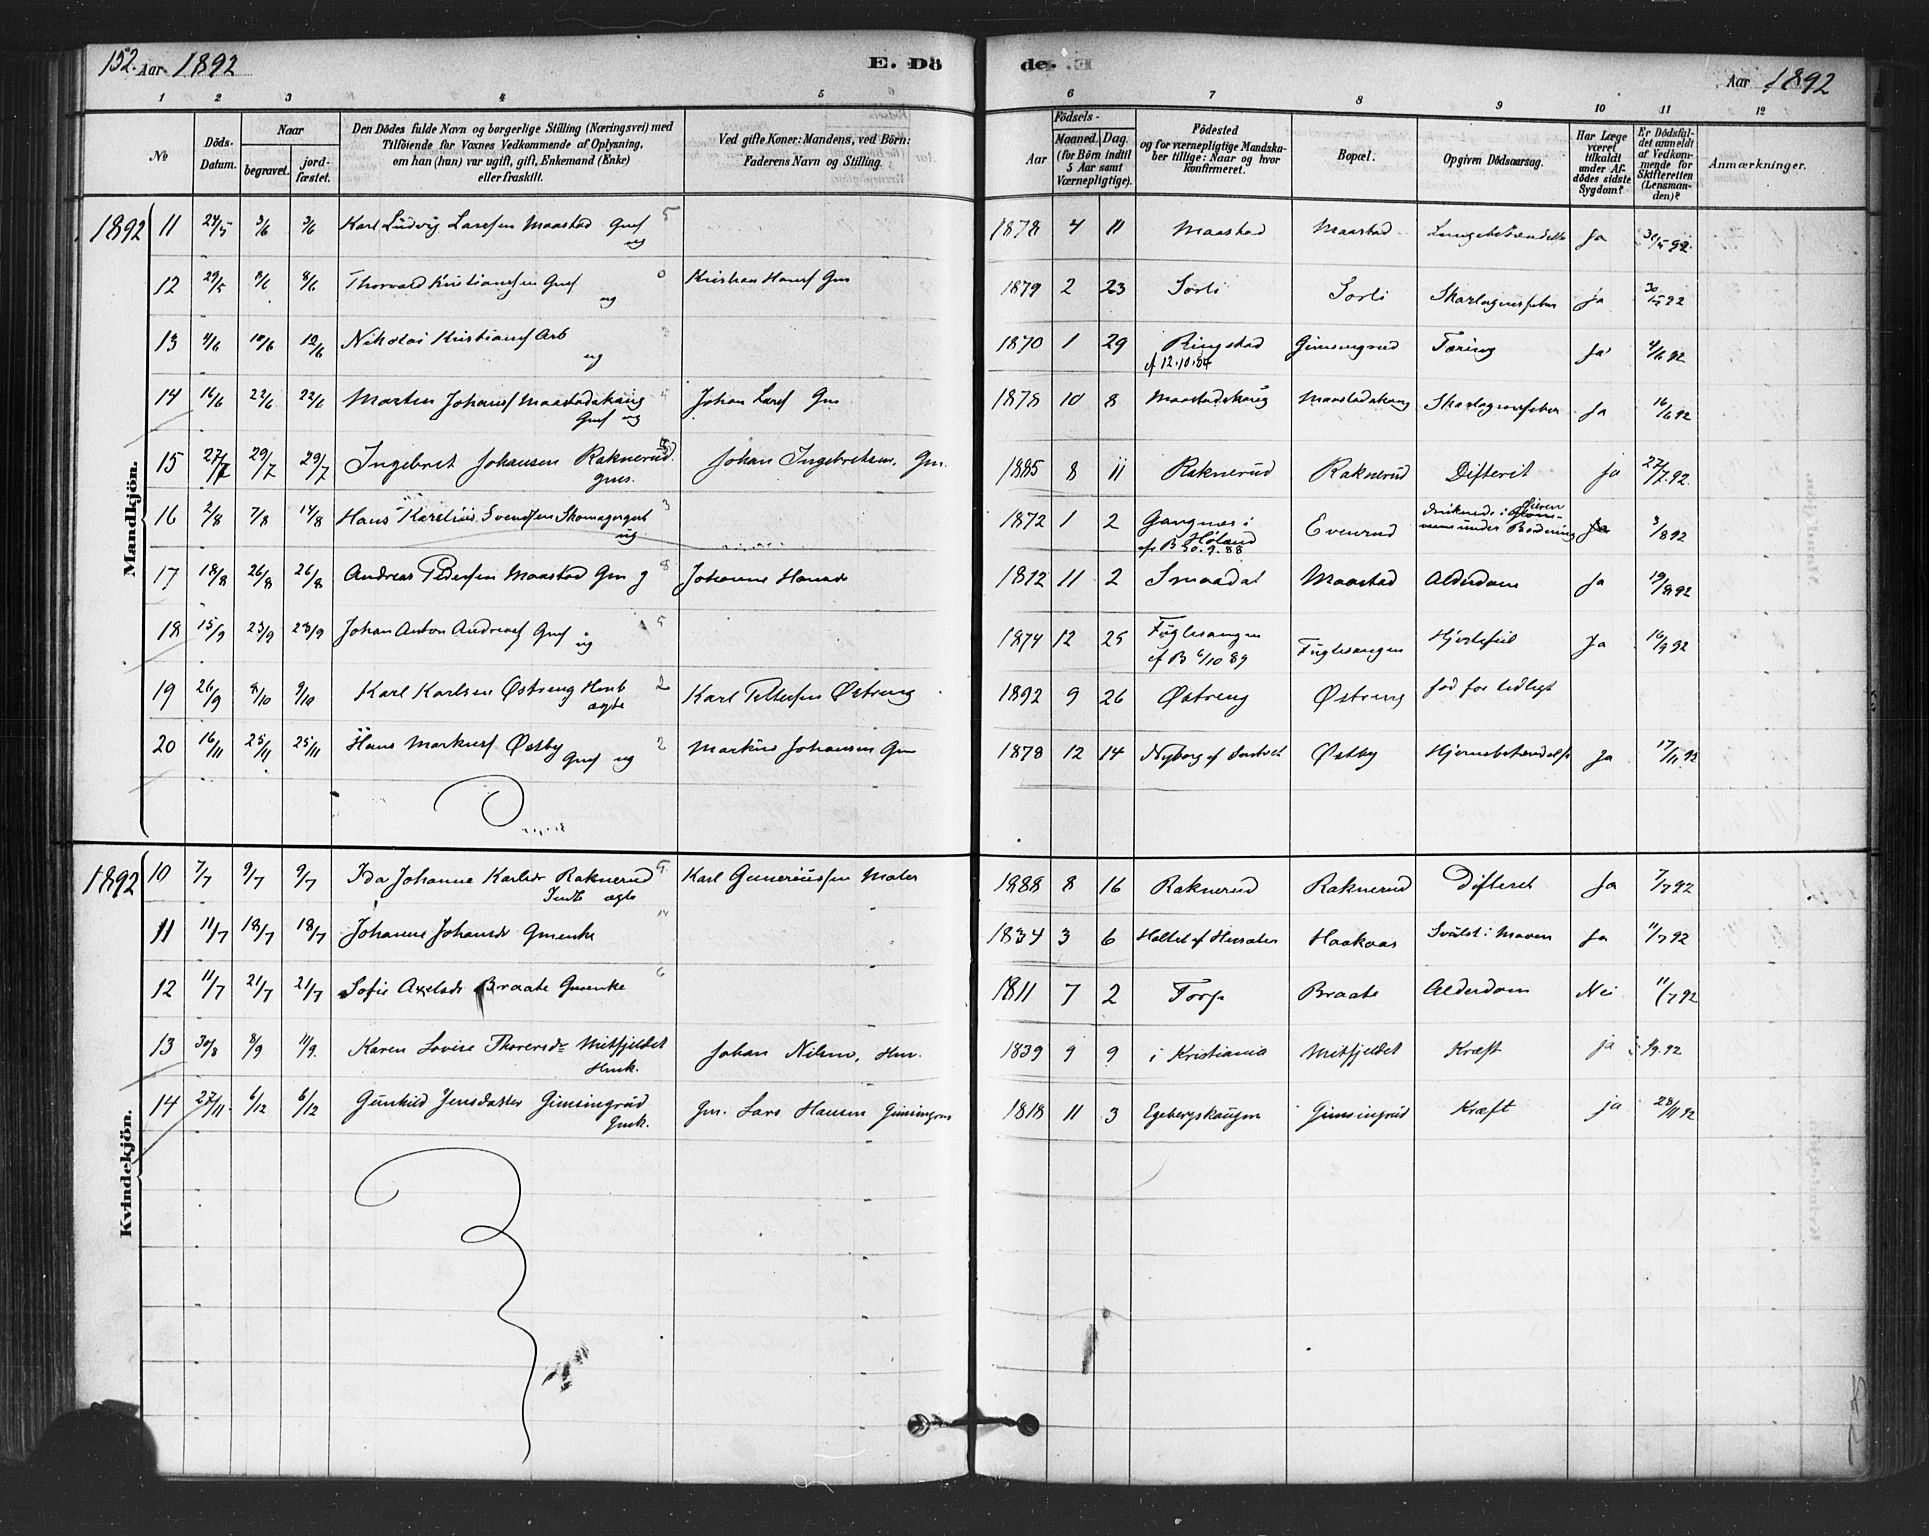 152. Aar 1892 E. Dö
de. Aar 1892
1 2 3 4 5
6 7 8 9 10 11 12
No
Döds-Datum.
Naar
begravet.
jord-fæstet.
Den Dödes fulde Navn og borgerlige Stilling (Næringsvei) med
Tilföiende for Voxnes Vedkommende af Oplysning,
om han (hun) var ugift, gift, Enkemand (Enke)
eller fraskilt.
Ved gifte Koner: Mandens, ved Börn:
Faderens Navn og Stilling.
Födsels-
Aar
Maaned. Dag.
(for Börn indtil
5 Aar samt
Værnepligtige).
Födested
og for værnepligtige Mandska-
ber tillige: Naar og hvor
konfirmeret.
Bopæl.
Opgiven Dödsaarsag.
Har Læge
været
tilkaldt
under Af-
dödes sidste
Sygdom?
Er Dödsfal-
det anmeldt
af Vedkom-
mende for
Skifteretten
(Lensman-
den)?
Anmærkninger.
Mandkjön.
1892 11 24/5 3/6 3/6 Karl Ludvig Larssen Maastad Gms ug 1878 4 11 Maastad Maastad Lungebetændelse Ja 30/5 92
12 29/5 8/6 8/6 Thorvald Kristiansen Gms ug Kristian Hans Gm 1879 2 23 Sorli Sorli Skarlagensfeber ja 30/5 92
13 4/6 10/6 12/6 Nikolai Kristians Arb ug 1870 1 29 Ringstad cf 12.10.84 Gimsingrud Tæring Ja 4/6 92
14 16/6 22/6 22/6 Martin Johans Maastadskaug Gms ug Johan Lars Gm 1878 10 8 Maastadskaug Maastadskaug Skarlagensfeber Ja 16/6 92
15 27/7 29/7 29/7 Ingebret Johansen Raknerud. gms. Johan Ingebretsen, Gm. 1885 8 11 Raknerud Raknerud Difterit ja 27/7.92.
16 2/8 7/8 14/8 Hans Karelius Svendsen Skomagergut ug. 1872 1 2 Gangnæs i Höland cf. B 30.9.88 Evenrud druknede i under Badning Ja 3/8 92
17 18/8 26/8 26/8 Andreas Pedersen Maastad Gm g Johanne Hansdr 1812 11 2 Smaadal Maastad Alderdom Ja 19/8 92
18 15/9 23/9 23/9 Johan Anton Andreas Gms ug 1874 12 25 Fuglesangen cf B 6/10 89 Fuglesangen Hjertefeil Ja 16/9 92
19 26/9 8/10 9/10 Karl Karlsen Østreng ægte Karl Pettersen Østreng 1892 9 26 Østreng Østreng fød for tidligt
20 16/11 25/11 25/11 Hans Markus Østby Gms ug Markus Johansen Gm 1878 12 14 Nyborg af Østby Hjernebetændelse Ja 17/11 92
Kvindekjön.
1892 10 7/7 9/7 9/7 Ida Johanne Karlsdr Raknerud ægte Karl Gunerius sen Maler 1888 8 16 Raknerud Raknerud Difterit Ja 7/7 92
11 11/7 18/7 18/7 Johanne Johansdr Gmenke 1834 3 6 Holtet af Haakaas Svulst i Maven Ja 11/7 92
12 11/7 21/7 21/7 Sofie Axelsdr Braate Gmenke 1811 7 2 Torp Braate Alderdom Nei 11/7 92
13 30/8 8/9 11/9. Karen Lovise Thoresdr Mitfjeldet Hmk. Johan Nilsen, Hm. 1839 9 9 i Kristiania Mitfjeldet Kræft ja 1/9.92
14 27/11. 6/12 6/12 Gunhild Jensdatter Gimsingrud Gmk. Gm. Lars Hansen Gimsingrud 1818 11 3 Egebergskaugen Gimsingrud Kræft ja 28/11 92